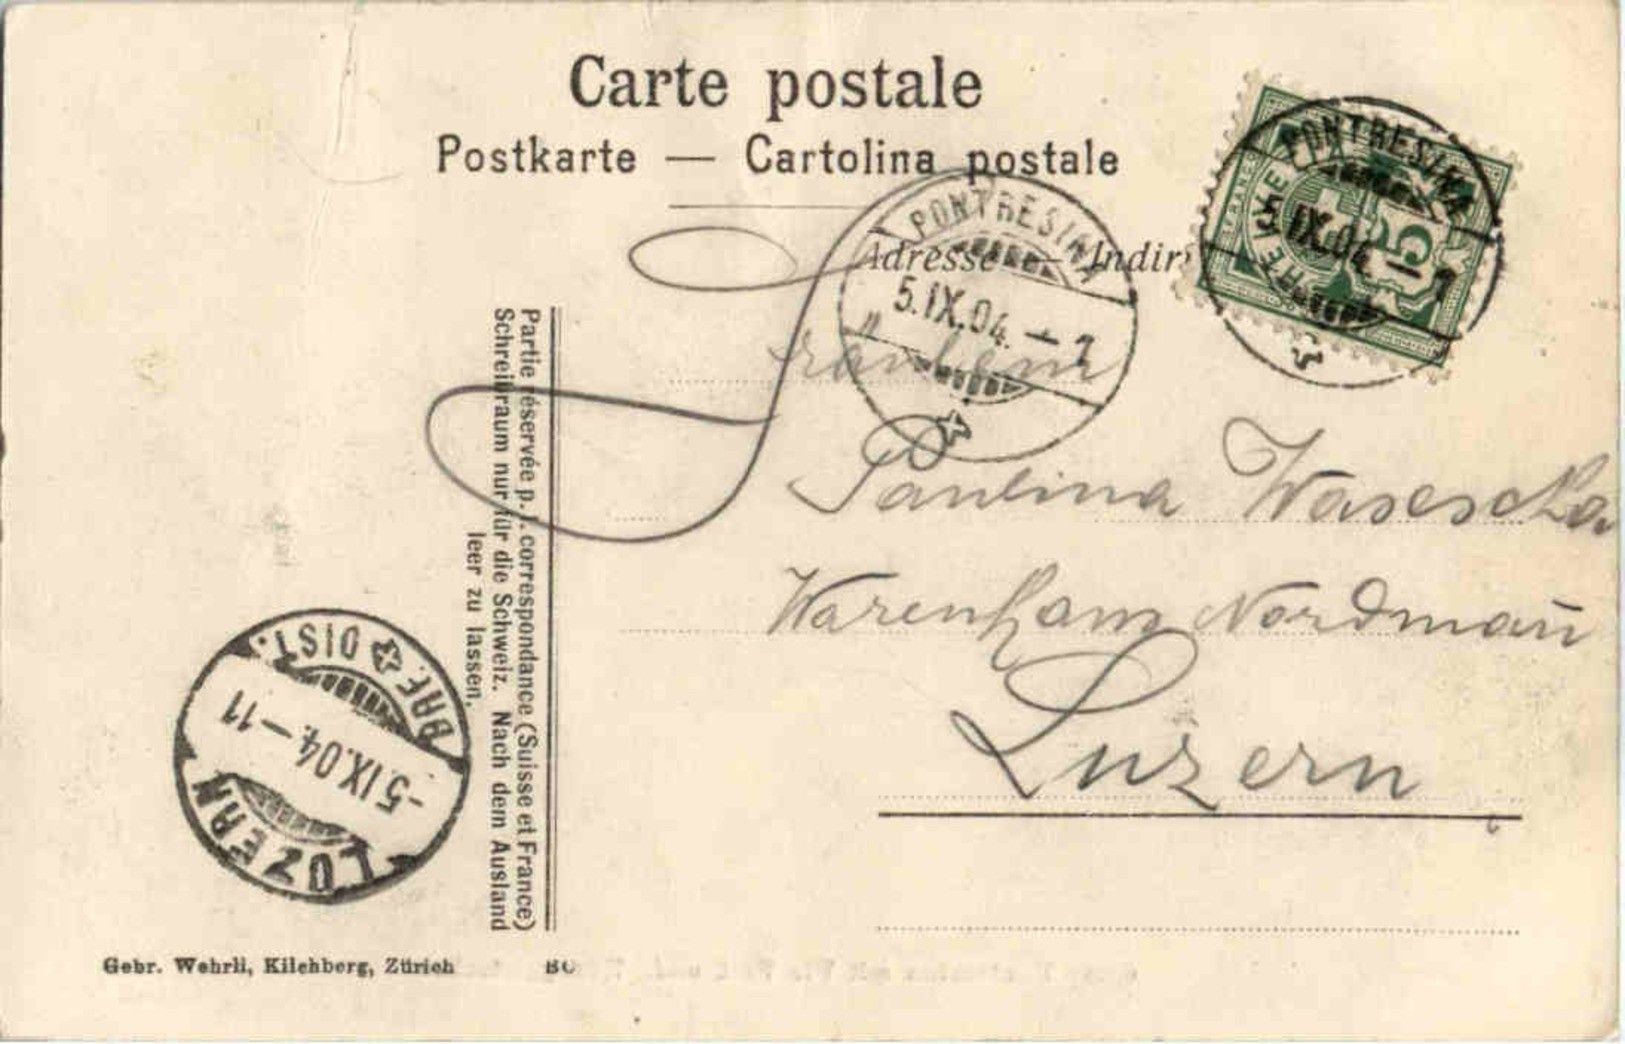 Carte postale
Postkarte — Cartolina postale
Adresse — Indir
PONTRESINA
5.IX.04.–7
PONTRESINA
IX.04.–7
FRANCO
5
Fräulein
Paulina Wasescha
Warenhaus Nordmañ
Luzern
Partie réservée p. l. correspondance (Suisse et France)
Schreibraum nur für die Schweiz. Nach dem Ausland
leer zu lassen.
LUZERN
–5.IX.04.–11
BRF. DIST.
Gebr. Wehrli, Kilchberg, Zürich